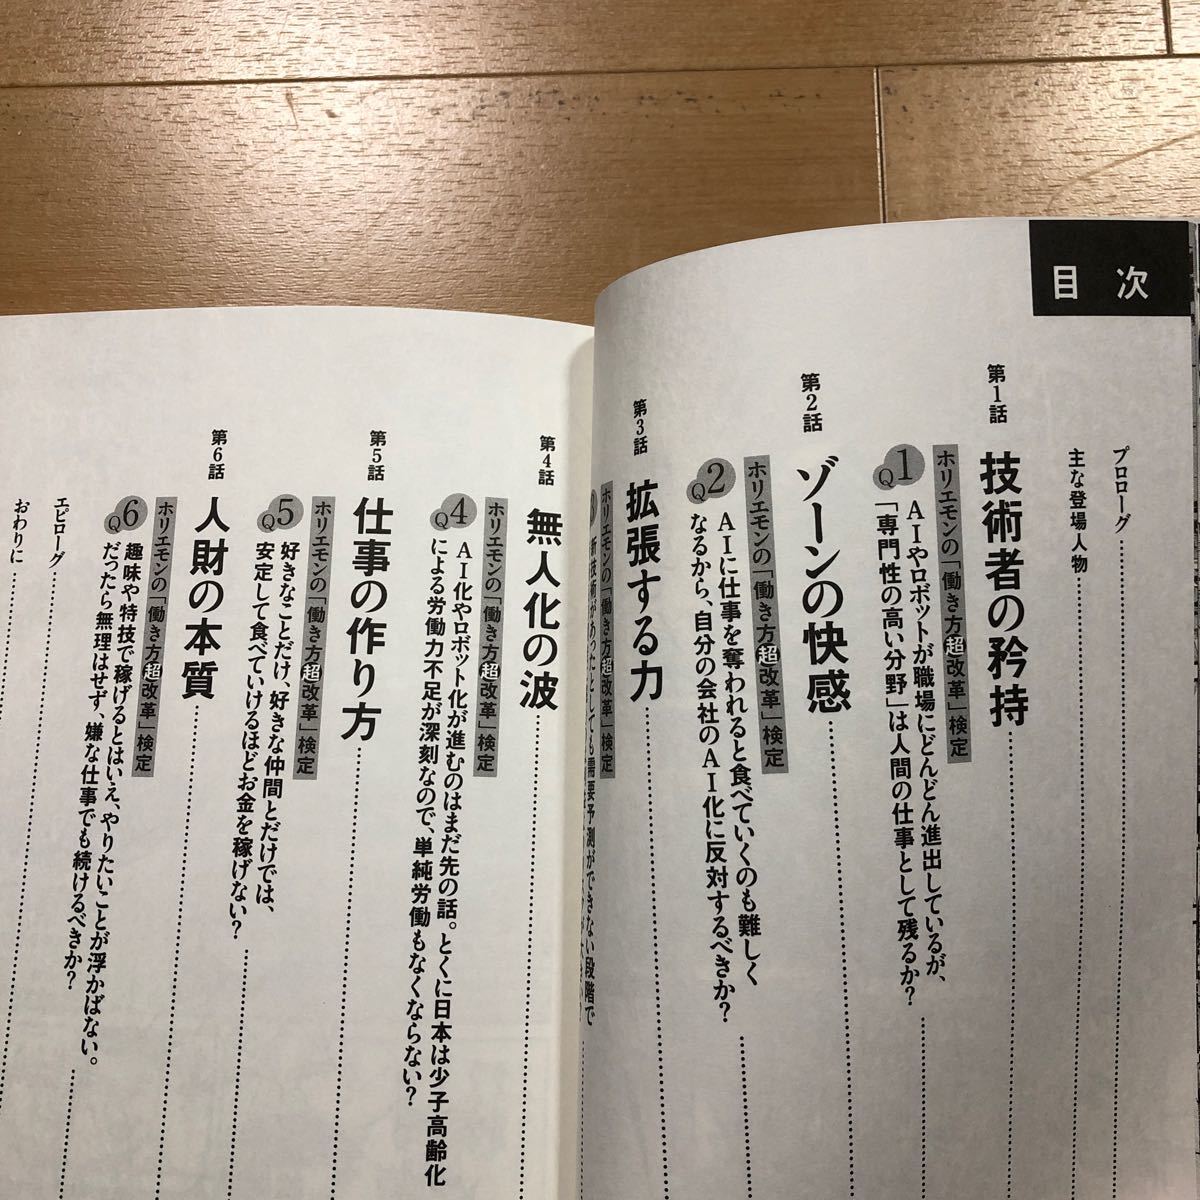 目次
プロローグ
主な登場人物
第1話 技術者の矜持
ホリエモンの「働き方超改革」検定
Q1 AIやロボットが職場にどんどん進出しているが、
「専門性の高い分野」は人間の仕事として残るか?
第2話 ゾーンの快感
ホリエモンの「働き方超改革」検定
Q2 AIに仕事を奪われると食べていくのも難しく
なるから、自分の会社のAI化に反対するべきか?
第3話 拡張する力
ホリエモンの「働き方超改革」検定
新技術があったとしても需要予測ができない段階で
第4話 無人化の波
ホリエモンの「働き方超改革」検定
Q4 AI化やロボット化が進むのはまだ先の話。とくに日本は少子高齢化
による労働力不足が深刻なので、単純労働もなくならない?
第5話 仕事の作り方
ホリエモンの「働き方超改革」検定
Q5 好きなことだけ、好きな仲間とだけでは、
安定して食べていけるほどお金を稼げない?
第6話 人財の本質
ホリエモンの「働き方超改革」検定
Q6 趣味や特技で稼げるとはいえ、やりたいことが浮かばない。
だったら無理はせず、嫌な仕事でも続けるべきか?
エピローグ
おわりに